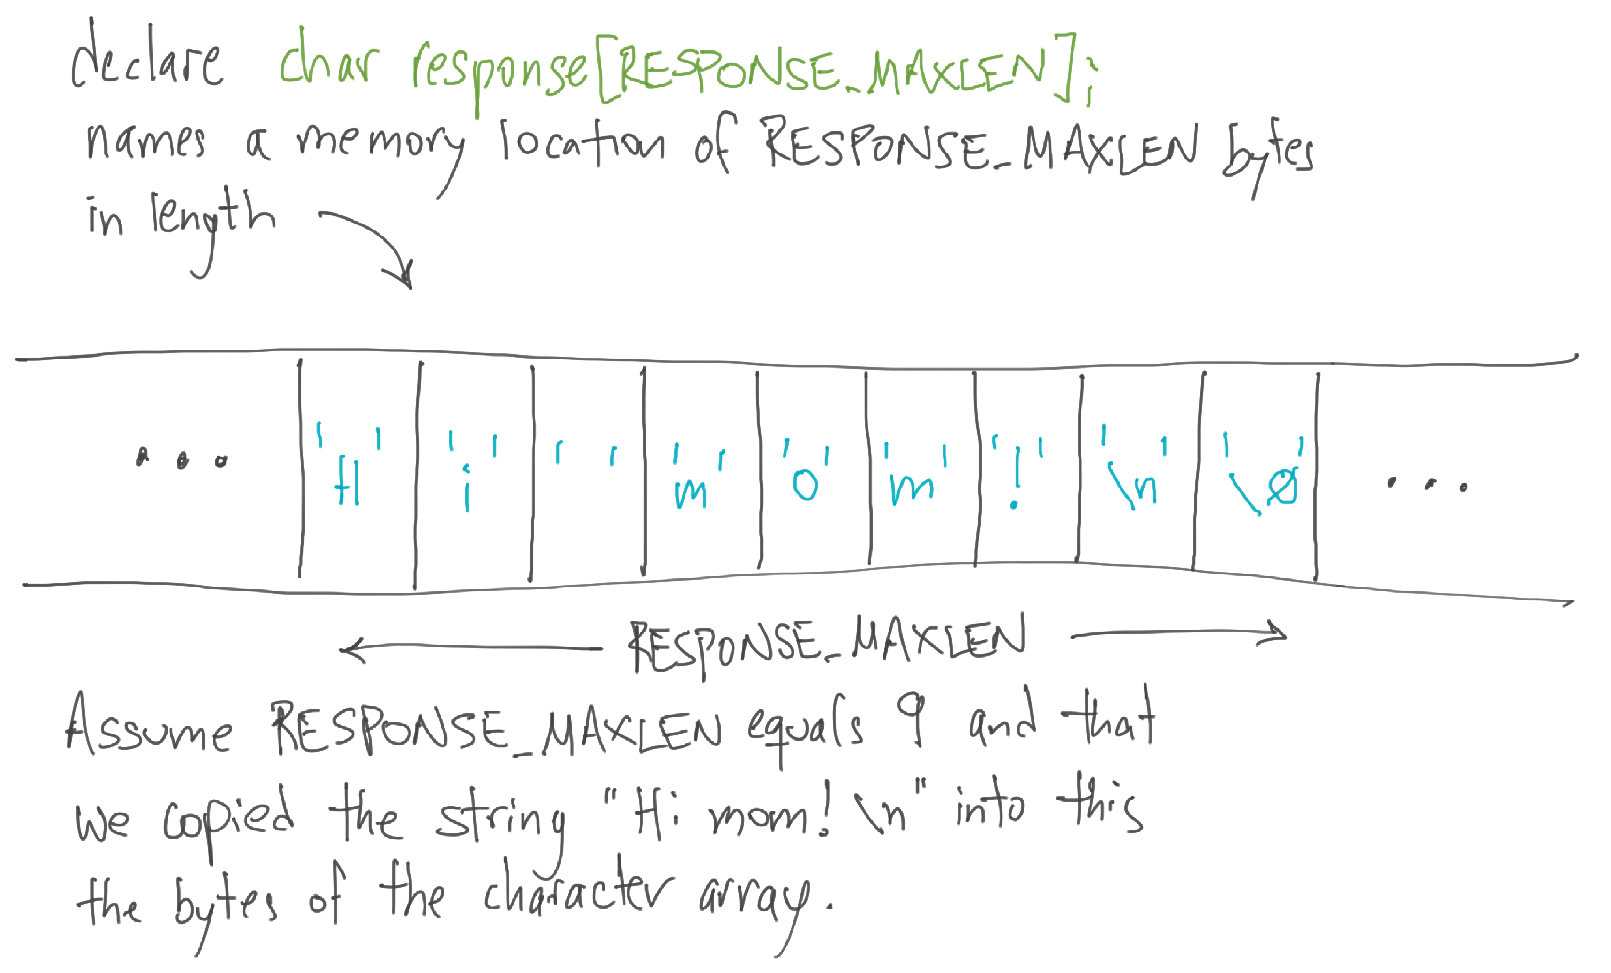 declare char response[RESPONSE_MAXLEN];
names a memory location of RESPONSE_MAXLEN bytes
in length
... 'H' 'i' ' ' 'm' 'o' 'm' '!' '\n' '\0' ...
RESPONSE_MAXLEN
Assume RESPONSE_MAXLEN equals 9 and that
we copied the string "Hi mom! \n" into this
the bytes of the character array.